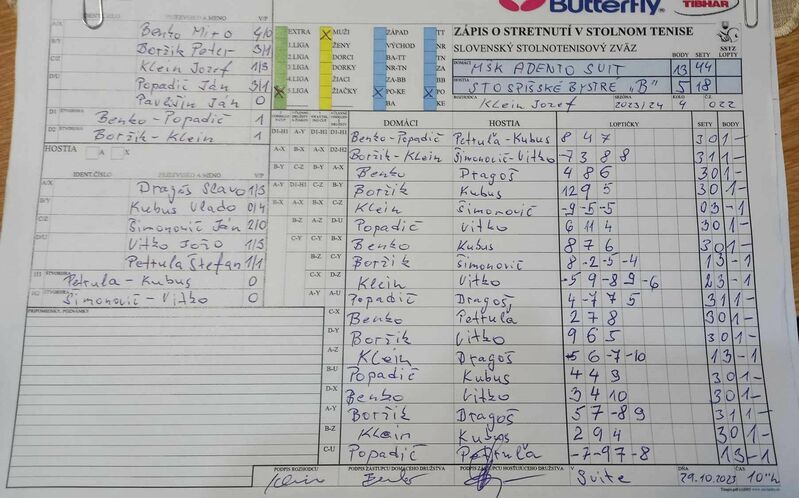 Butterfly
TIBHAR
IDENT. ČÍSLO PRIEZVISKO A MENO V/P
A/X Benko Miro 4/0
B/Y Boržik Peter 3/1
C/Z Klein Jozef 1/3
D/U Popadič Ján 3/1
Pavlišin Ján 0
D1 Benko-Popadič 1
D2 Boržik-Klein 1
HOSTIA A X
IDENT. ČÍSLO PRIEZVISKO A MENO V/P
A/X Dragoš Slavo 1/3
B/Y Kubus Vlado 0/4
C/Z Šimonovič Ján 2/0
D/U Vitko Jožo 1/3
Petruľa Štefan 1/1
H1 ŠTVORHRA Petruľa-Kubus 0
ŠTVORHRA Šimonovič-Vitko 0
PRIPOMIENKY, POZNÁMKY
EXTRA MUŽI ZÁPAD TT
1.LIGA ŽENY VÝCHOD NR
2.LIGA DORCI BA-TT TN
3.LIGA DORKY NR-TN ZA
4.LIGA ŽIACI ZA-BB BB
5.LIGA ŽIAČKY PO-KE PO
BA KE
ZÁPIS O STRETNUTÍ V STOLNOM TENISE
SLOVENSKÝ STOLNOTENISOVÝ ZVÄZ
BODY SETY SSTZ LOPTY
DOMÁCI MŠK ADENTO SVIT 13 44
HOSTIA STO SPIŠSKÉ BYSTRÉ "B" 5 18
ROZHODCA Klein Jozef 2023/24 KOLO 4 Č.Z. 022
DOMÁCI HOSTIA LOPTIČKY SETY BODY LOPTY
D1-H1 A-Y A-Y H-D1 Benko-Popadič Petruľa-Kubus 8 4 7 3 0 1 -
A-X B-X A-X D2-H2 Boržik-Klein Šimonovič-Vitko -7 3 8 8 3 1 1 -
B-Y C-Z B-Y A-X Benko Dragoš 4 8 6 3 0 1 -
A-Y D1-H1 C-Z B-Y Boržik Kubus 12 9 5 3 0 1 -
B-X A-X A-X C-Z Klein Šimonovič -9 -5 -5 0 3 -1
C-Y B-Z D-U Popadič Vitko 6 11 4 3 0 1 -
B-Y C-Y A-Y Benko Kubus 8 7 6 3 0 1 -
B-Z C-Y B-Z Boržik Šimonovič 8 -2 -5 -4 1 3 -1
C-X D-Z Klein Vitko -5 9 -8 9 -6 2 3 -1
A-Y A-U Popadič Dragoš 4 -7 7 5 3 1 1 -
C-X Benko Petruľa 2 7 8 3 0 1 -
D-Y Boržik Vitko 9 6 5 3 0 1 -
A-Z Klein Dragoš -5 6 -7 -10 1 3 -1
B-U Popadič Kubus 4 4 9 3 0 1 -
D-X Benko Vitko 3 4 10 3 0 1 -
A-Y Boržik Dragoš 5 7 -8 9 3 1 1 -
B-Z Klein Kubus 2 9 4 3 0 1 -
C-U Popadič Petruľa -7 -9 7 -8 1 3 -1
PODPIS ROZHODCU PODPIS ZÁSTUPCU DOMÁCEHO DRUŽSTVA PODPIS ZÁSTUPCU HOSŤUJÚCEHO DRUŽSTVA V Svite DŇA 29.10.2023 10°° h